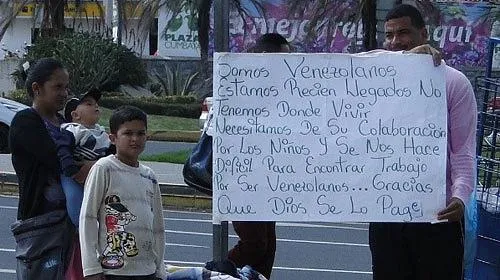 PLAZA
CUMBAYÁ
Somos Venezolanos
Estamos Recien Llegados No
Tenemos Donde Vivir
Necesitamos De Su Colaboración
Por Los Niños Y Se Nos Hace
Dificil Para Encontrar Trabajo
Por Ser Venezolanos... Gracias
Que Dios Se Lo Page